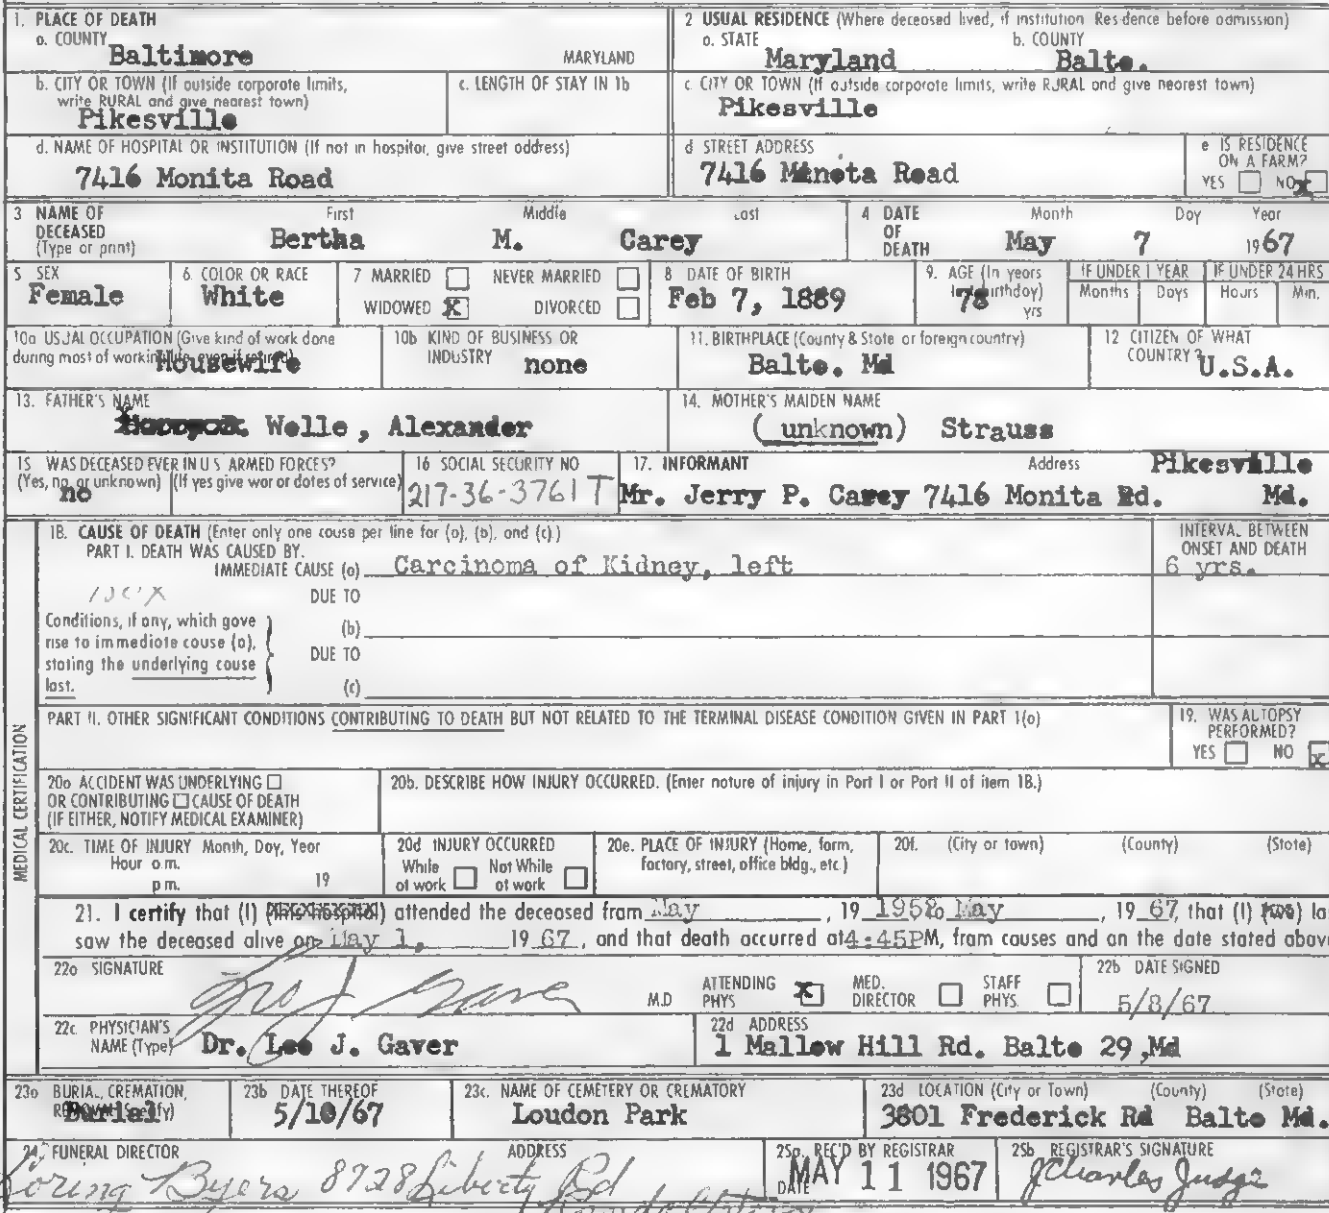 1. PLACE OF DEATH
a. COUNTY
Baltimore
MARYLAND
2 USUAL RESIDENCE (Where deceased lived, if institution Residence before admission)
a. STATE b. COUNTY
Maryland Balto.
b. CITY OR TOWN (If outside corporate limits, write RURAL and give nearest town)
Pikesville
c. LENGTH OF STAY IN 1b
c. CITY OR TOWN (If outside corporate limits, write RURAL and give nearest town)
Pikesville
d. NAME OF HOSPITAL OR INSTITUTION (If not in hospital, give street address)
7416 Monita Road
d STREET ADDRESS
7416 Maneta Road
e IS RESIDENCE ON A FARM?
YES NO x
3 NAME OF DECEASED (Type or print)
First Middle Last
Bertha M. Carey
4 DATE OF DEATH
Month Day Year
May 7 1967
5 SEX
Female
6. COLOR OR RACE
White
7 MARRIED NEVER MARRIED
WIDOWED X DIVORCED
8 DATE OF BIRTH
Feb 7, 1889
9. AGE (In years last birthday)
78 yrs
IF UNDER 1 YEAR
Months Days
IF UNDER 24 HRS
Hours Min.
10a USUAL OCCUPATION (Give kind of work done during most of working life, even if retired)
Housewife
10b KIND OF BUSINESS OR INDUSTRY
none
11. BIRTHPLACE (County & State or foreign country)
Balto. Md
12 CITIZEN OF WHAT COUNTRY?
U.S.A.
13. FATHER'S NAME
Welle, Alexander
14. MOTHER'S MAIDEN NAME
(unknown) Strauss
15 WAS DECEASED EVER IN U S ARMED FORCES?
(Yes, no, or unknown) (If yes give war or dates of service)
no
16 SOCIAL SECURITY NO
217-36-3761 T
17. INFORMANT Address
Mr. Jerry P. Carey 7416 Monita Rd. Pikesville Md.
MEDICAL CERTIFICATION
18. CAUSE OF DEATH (Enter only one cause per line for (a), (b), and (c).)
PART I. DEATH WAS CAUSED BY.
IMMEDIATE CAUSE (a) Carcinoma of Kidney, left
INTERVAL BETWEEN ONSET AND DEATH
6 yrs.
Conditions, if any, which gave rise to immediate cause (a), stating the underlying cause last.
DUE TO
(b)
DUE TO
(c)
PART II. OTHER SIGNIFICANT CONDITIONS CONTRIBUTING TO DEATH BUT NOT RELATED TO THE TERMINAL DISEASE CONDITION GIVEN IN PART 1(a)
19. WAS AUTOPSY PERFORMED?
YES NO x
20a ACCIDENT WAS UNDERLYING
OR CONTRIBUTING CAUSE OF DEATH
(IF EITHER, NOTIFY MEDICAL EXAMINER)
20b. DESCRIBE HOW INJURY OCCURRED. (Enter nature of injury in Part I or Part II of item 18.)
20c. TIME OF INJURY Month, Day, Year
Hour a.m.
p m. 19
20d INJURY OCCURRED
While at work Not While at work
20e. PLACE OF INJURY (Home, farm, factory, street, office bldg., etc.)
20f. (City or town) (County) (State)
21. I certify that (I) (this hospital) attended the deceased from May , 19 1958 to May , 19 67, that (I) (we) la
saw the deceased alive on May 1, 19 67, and that death occurred at 4:45PM, from causes and on the date stated above
22a SIGNATURE
Leo J Gaver
M.D
ATTENDING PHYS X
MED. DIRECTOR
STAFF PHYS.
22b DATE SIGNED
5/8/67
22c. PHYSICIAN'S NAME (Type)
Dr. Leo J. Gaver
22d ADDRESS
1 Mallow Hill Rd. Balto 29,Md
23a BURIAL, CREMATION, REMOVAL (Specify)
Burial
23b DATE THEREOF
5/10/67
23c. NAME OF CEMETERY OR CREMATORY
Loudon Park
23d LOCATION (City or Town) (County) (State)
3801 Frederick Rd Balto Md.
24. FUNERAL DIRECTOR ADDRESS
Loring Byers 8728 Liberty Rd
25a. REC'D BY REGISTRAR
DATE MAY 11 1967
25b REGISTRAR'S SIGNATURE
J Charles Judge